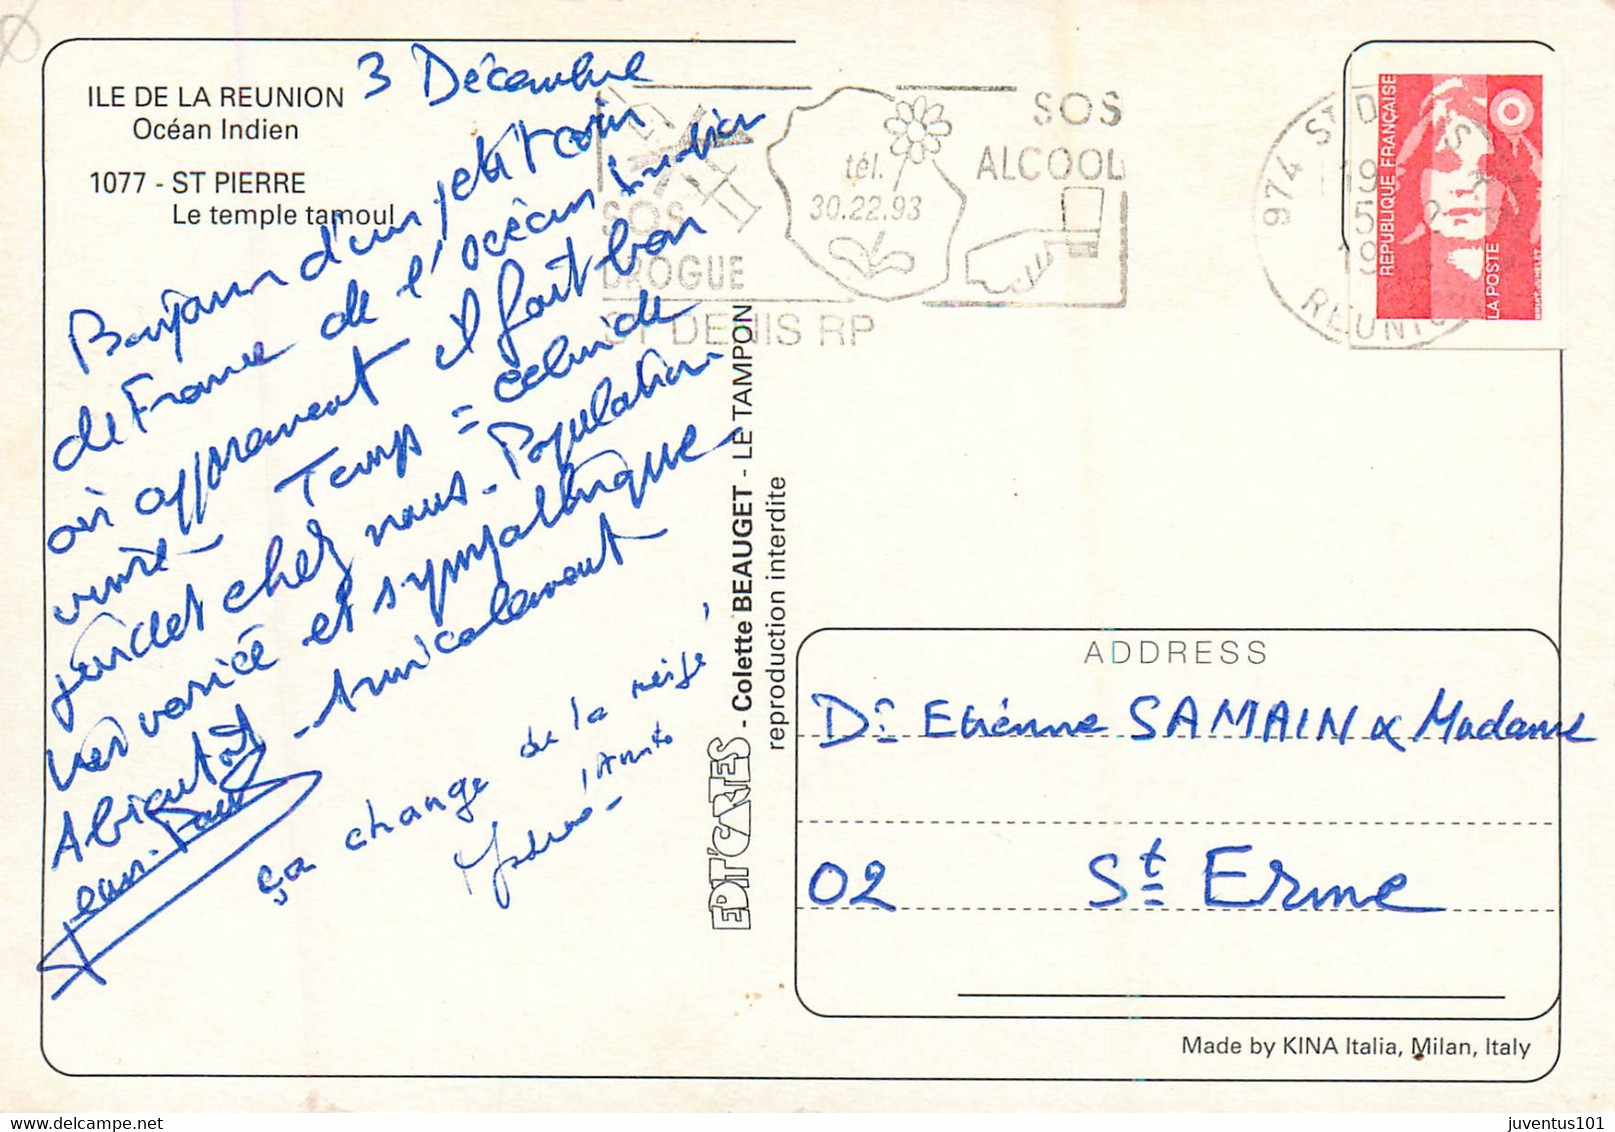 ILE DE LA REUNION
Océan Indien
1077 - ST PIERRE
Le temple tamoul
3 Décembre
Bonjour d'un petit coin
de France de l'océan Indien
où apparement il fait bon
vivre - Temps =
chez nous - Population
très variée et sympathique -
A bientôt - Amicalement
Jean-Paul
ça change de la neige !
SOS
DROGUE
tél.
30.22.93
SOS
ALCOOL
ST DENIS RP
974 ST DENIS
REUNION
REPUBLIQUE FRANÇAISE
LA POSTE
EDIT'CARTES - Colette BEAUGET - LE TAMPON
reproduction interdite
ADDRESS
Dr Etienne SAMAIN & Madame
02 St Erme
Made by KINA Italia, Milan, Italy
juventus101